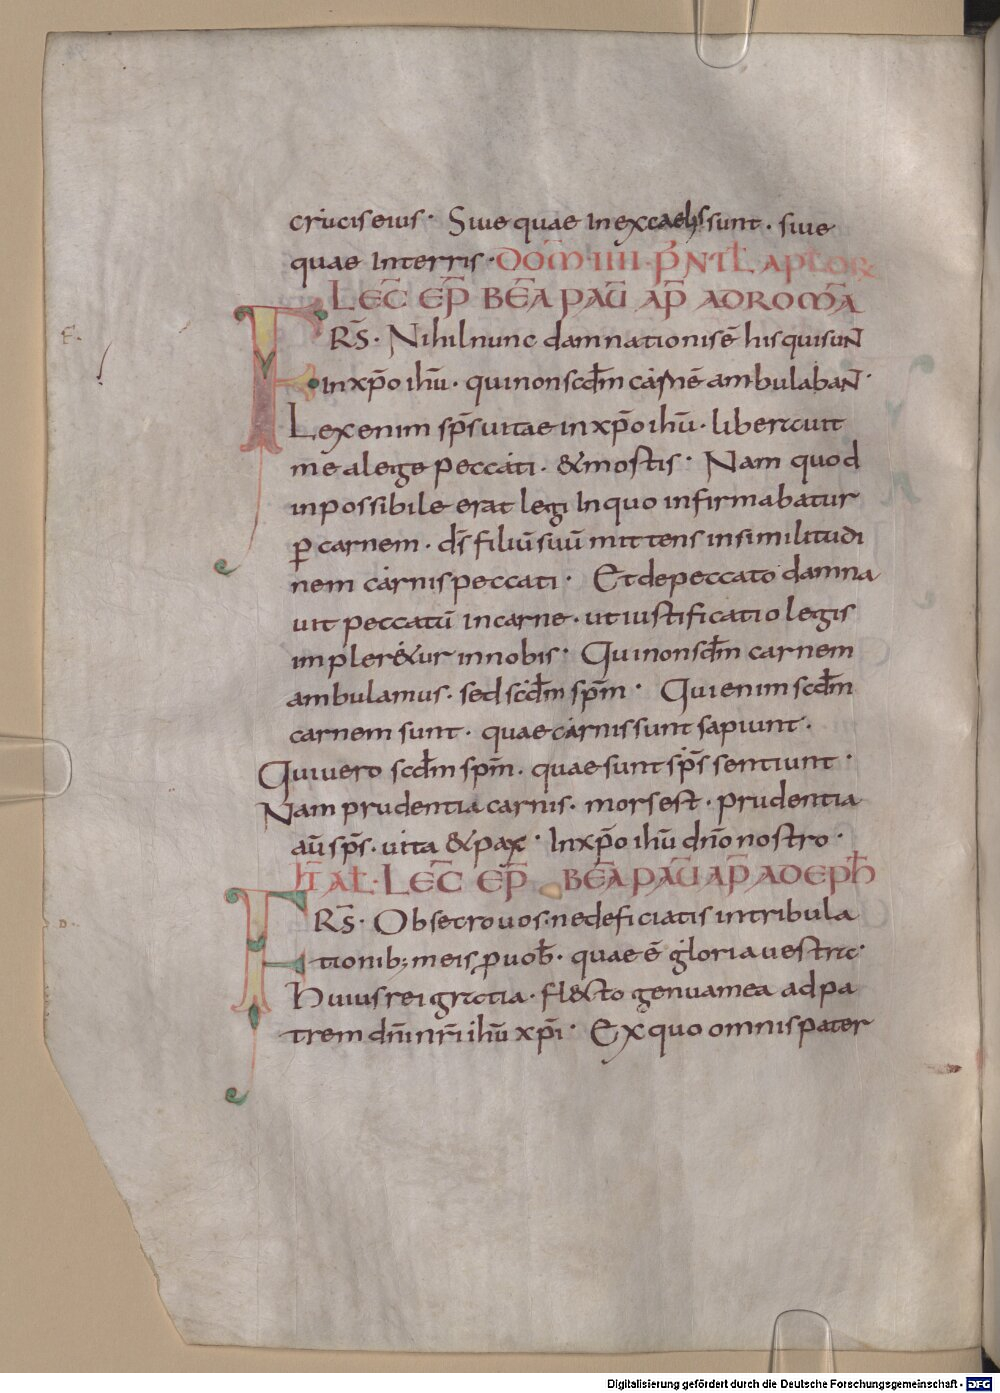 crucis eius · Siue quae in excaelis sunt · siue
quae in terris · DOM̄ IIII · P̄ NTL̄ APTOR
LEC̄ EP̄ BĒA PAŪ AP̄ AD ROM̄A
F
RS̄ · Nihil nunc damnationis ē his qui sunt
in xp̄o ihū · qui non scdm̄ carnē ambulabant ·
Lex enim sp̄s uitae in xp̄o ihū · liberauit
me a lege peccati · & mortis · Nam quod
inpossibile erat legi In quo infirmabatur
ꝑ carnem · ds̄ filiū suū mittens in similitudi
nem carnis peccati · Et de peccato damna
uit peccatū in carne · ut iustificatio legis
impler&ur in nobis · Qui non scdm̄ carnem
ambulamus · sed scdm̄ spm̄ · Qui enim scdm̄
carnem sunt · quae carnis sunt sapiunt ·
Qui uero scdm̄ spm̄ · quae sunt sp̄s sentiunt ·
Nam prudentia carnis · mors est · prudentia
aū sp̄s · uita & pax · In xp̄o ihū dn̄o nostro ·
IT̄ AL̄ · LEC̄ EP̄ BĒA PAŪ AP̄ AD EPH̄
F
RS̄ · Obsecro uos · ne deficiatis in tribula
tionib; meis ꝓ uob̄ · quae ē gloria uestra ·
Huius rei gratia · fl&cto genua mea ad pa
trem dn̄i nr̄i ihū xp̄i · Ex quo omnis pater
Digitalisierung gefördert durch die Deutsche Forschungsgemeinschaft - DFG